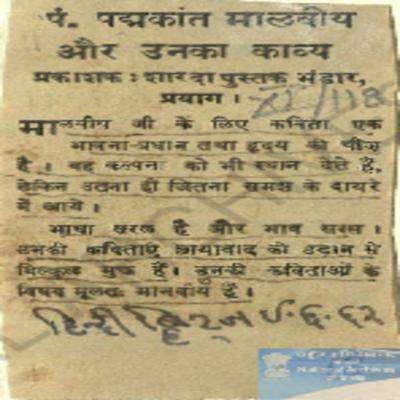 पं. पद्मकांत मालवीय
और उनका काव्य
प्रकाशक: शारदा पुस्तक भंडार,
प्रयाग।
XI/118
मालवीय जी के लिए कविता एक
भावना-प्रधान तथा हृदय की चीज
है। वह कल्पना को भी स्थान देते हैं,
लेकिन उतना ही जितना समझ के दायरे
में आये।
भाषा सरल है और भाव सरस।
उनकी कविताएं छायावाद की उड़ान से
बिल्कुल मुक्त हैं। उनकी कविताओं के
विषय मूलतः मानवीय हैं।
५.६.६२